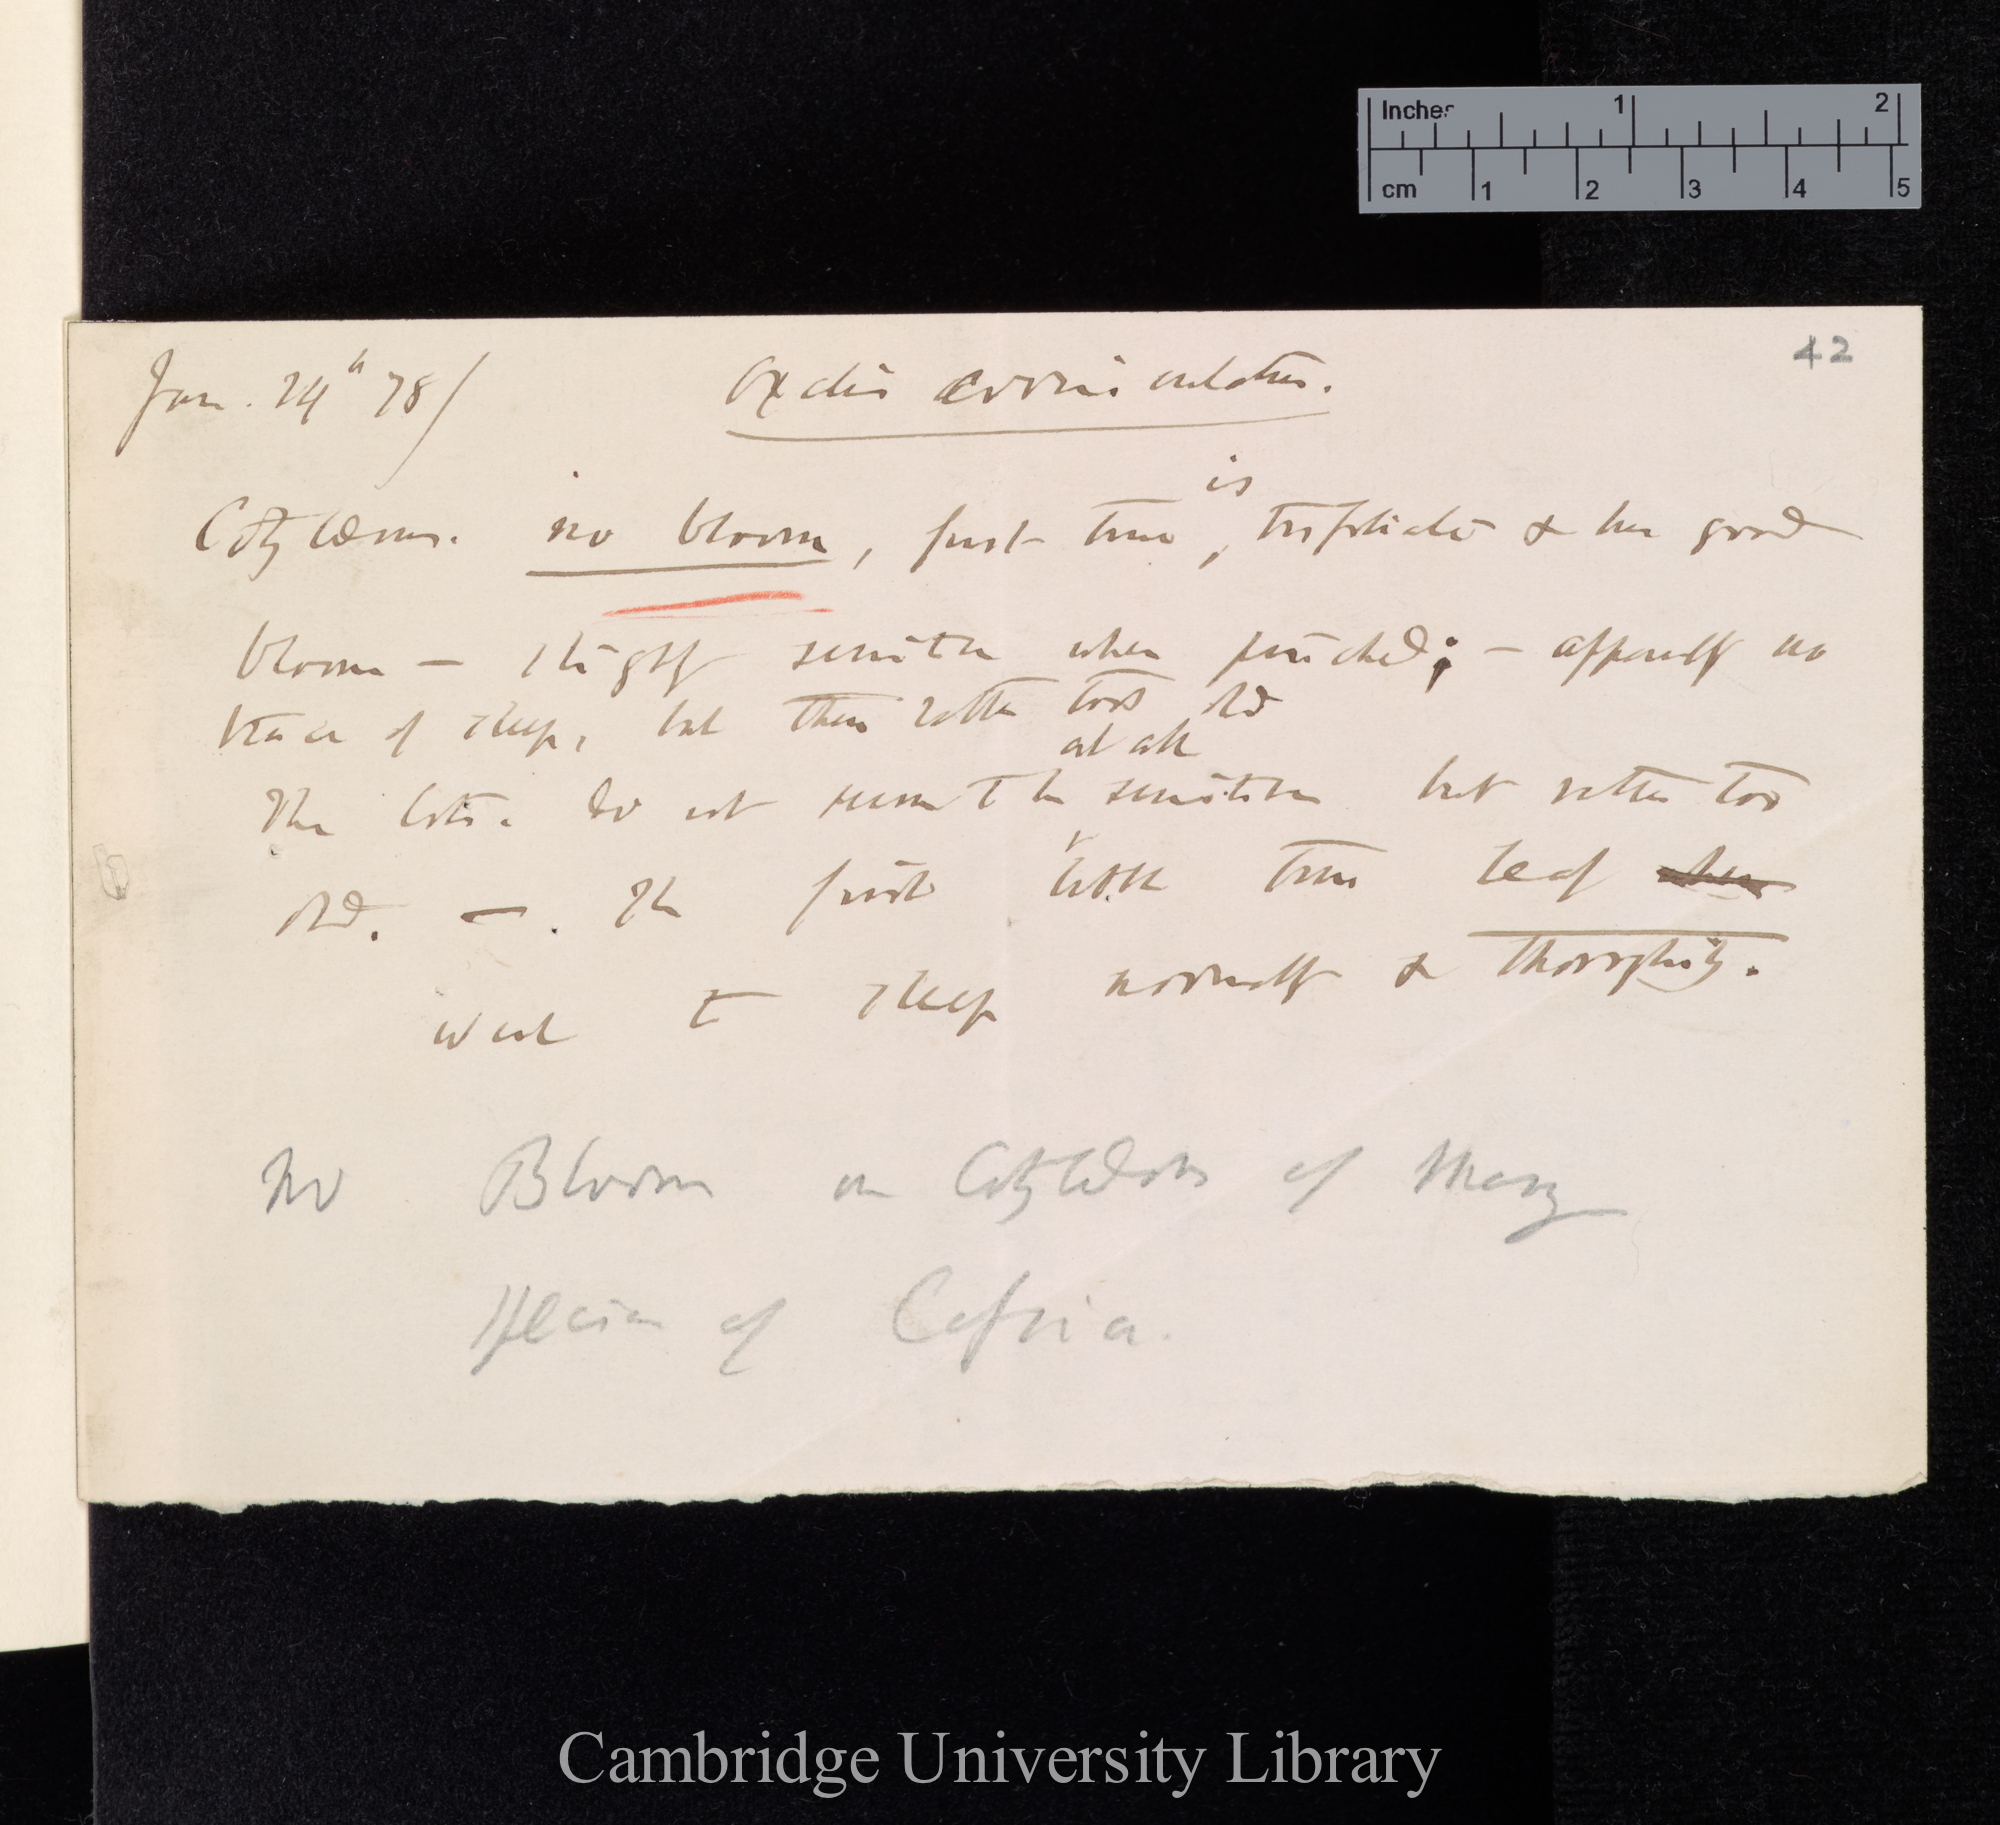 Inches 1 2
cm 1 2 3 4 5
42
Jan. 24th 78/ Oxalis corniculata.
Cotyledons. no bloom, first true, is trifoliate & has good
bloom — slightly sensitive when pinched; — apparently no
trace of sleep, but then rather too old
The cots. do not seem to be sensitive at all but rather too
old. — . The first little true leaf when
went to sleep normally & thoroughly.
No Bloom on Cotyledons of many
species of Cassia.
Cambridge University Library